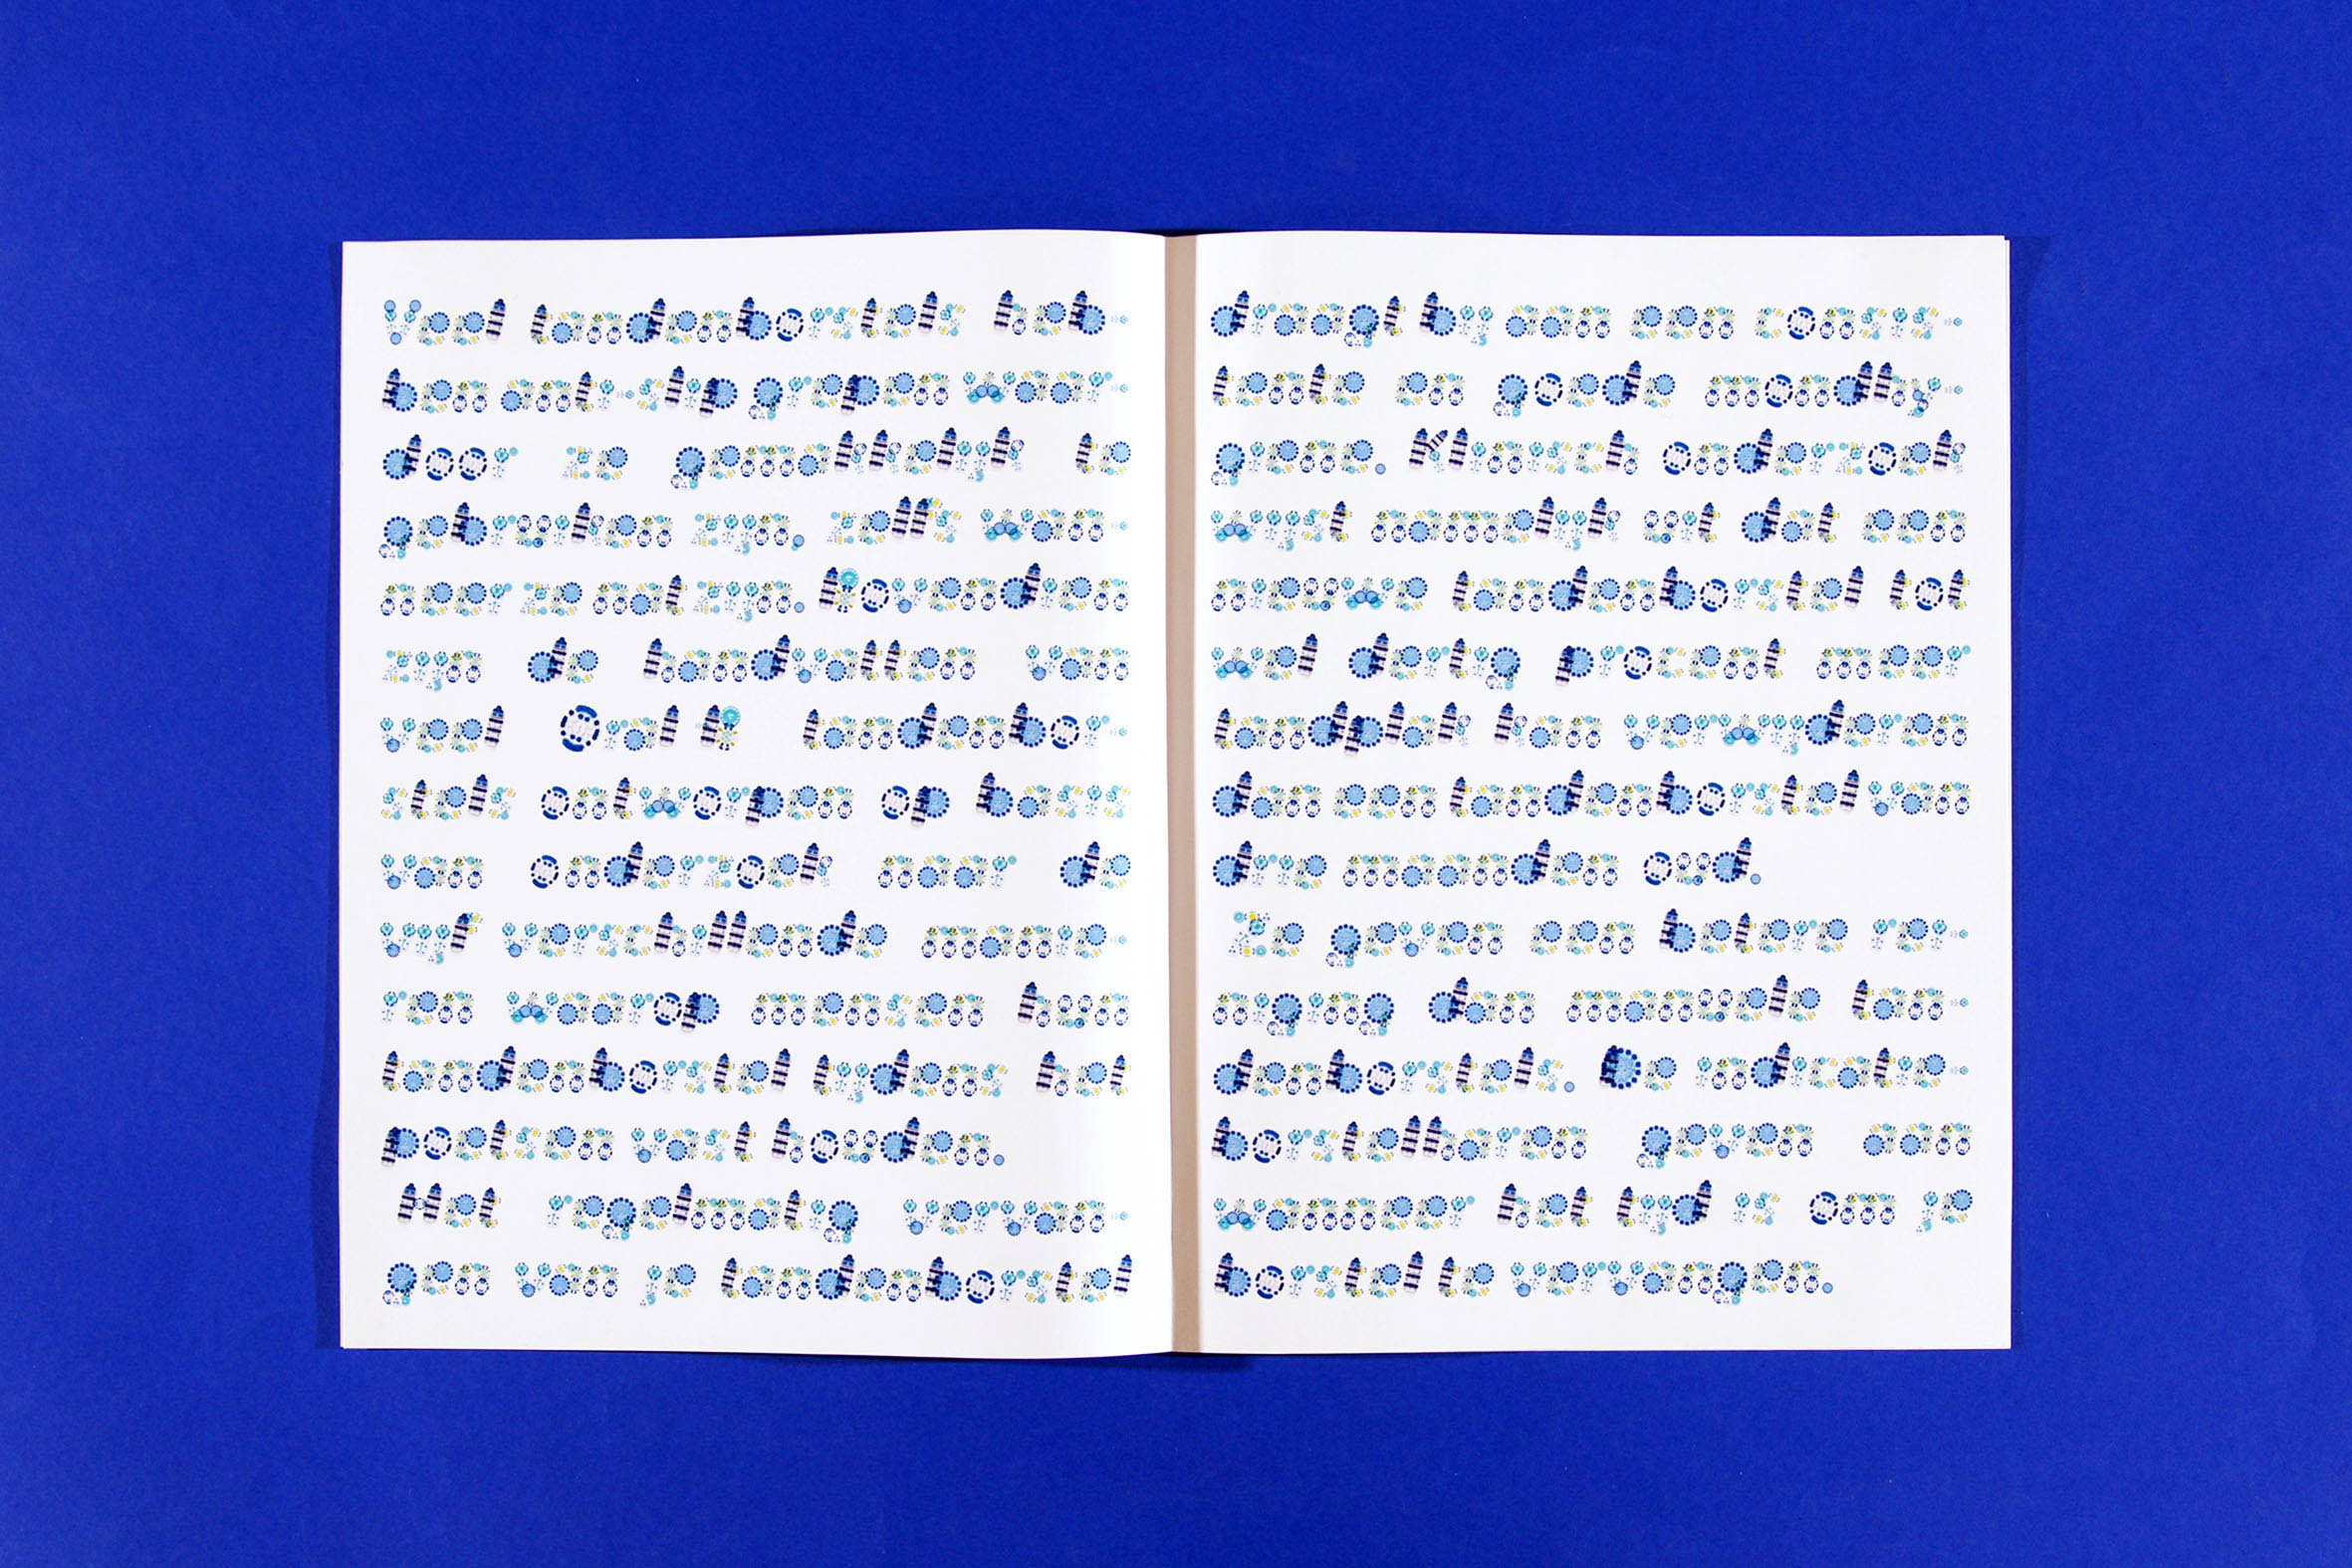 Veel tandenborstels heb-
ben anti-slip grepen waar-
door ze gemakkelijk te
gebruiken zijn, zelfs wan-
neer ze nat zijn. Bovendien
zijn de handvatten van
veel Oral B tandenbor-
stels ontworpen op basis
van onderzoek naar de
vijf verschillende manie-
ren waarop mensen hun
tandenborstel tijdens het
poetsen vast houden.
Het regelmatig vervan-
gen van je tandenborstel
draagt bij aan een consis-
tente en goede mondhy-
giene. Klinisch onderzoek
wijst namelijk uit dat een
nieuwe tandenborstel tot
wel dertig procent meer
tandplak kan verwijderen
dan een tandenborstel van
drie maanden oud.
Ze geven een betere rei-
niging dan manuele tan-
denborstels. De indicatie-
borstelharen geven aan
wanneer het tijd is om je
borstel te vervangen.